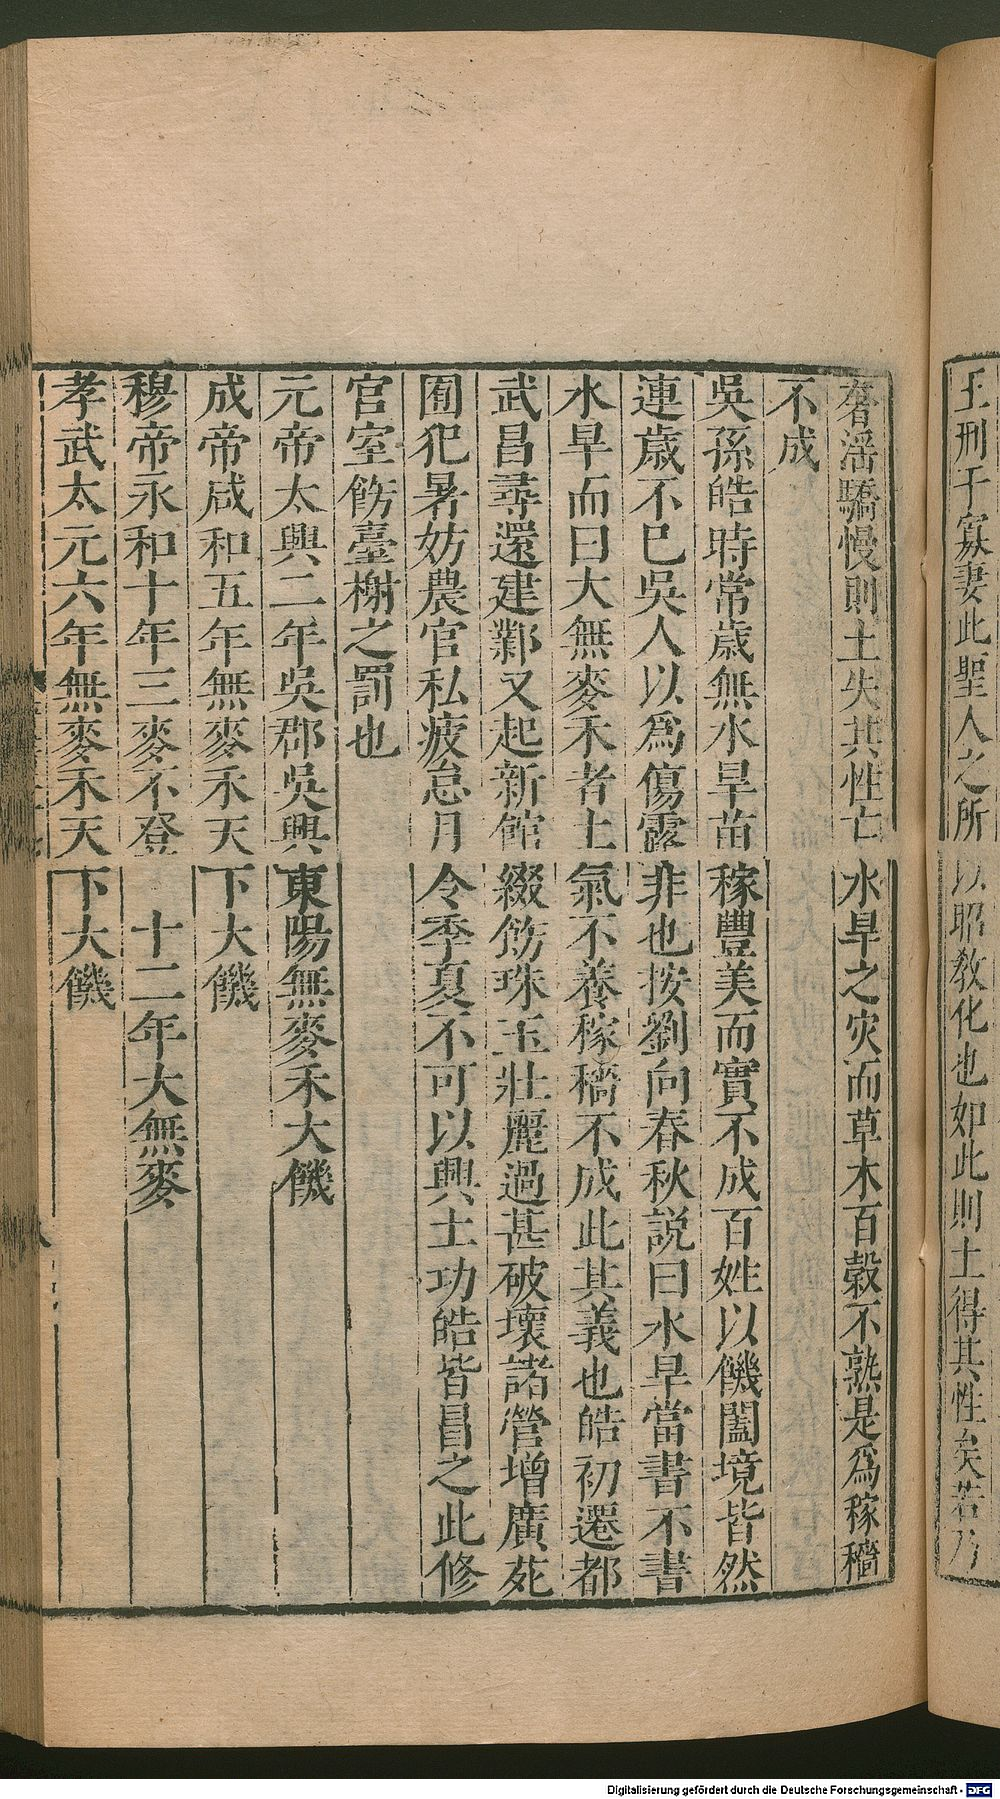 王刑于寡妻此聖人之所以昭教化也如此則土得其性矣若乃
奢淫驕慢則土失其性亡水旱之灾而草木百穀不熟是爲稼穡
不成
吳孫皓時常歳無水旱苗稼豐美而實不成百姓以饑闔境皆然
連歳不已吳人以爲傷露非也按劉向春秋説曰水旱當書不書
水旱而曰大無麥禾者土氣不養稼穡不成此其義也皓初遷都
武昌尋還建鄴又起新館綴飭珠玉壯麗過甚破壞諸營增廣苑
囿犯暑妨農官私疲怠月令季夏不可以興土功皓皆冒之此修
官室飭臺榭之罰也
元帝太興二年吳郡吳興東陽無麥禾大饑
成帝咸和五年無麥禾天下大饑
穆帝永和十年三麥不登　十二年大無麥
孝武太元六年無麥禾天下大饑
Digitalisierung gefördert durch die Deutsche Forschungsgemeinschaft - DFG